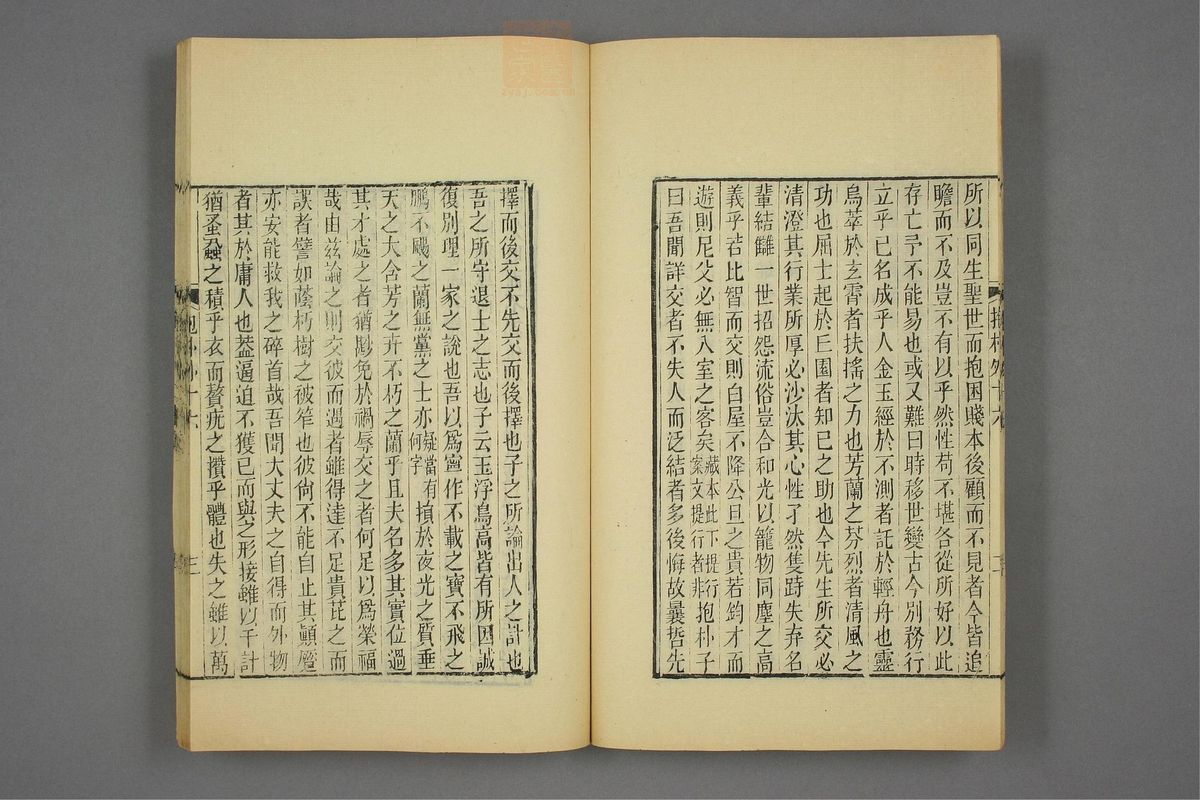 所以同生聖世而抱困賤本後顧而不見者今皆追
瞻而不及豈不有以乎然性苟不堪各從所好以此
存亡予不能易也或又難曰時移世變古今別務行
立乎己名成乎人金玉經於不測者託於輕舟也靈
烏萃於玄霄者扶搖之力也芳蘭之芬烈者清風之
功也屈士起於丘園者知己之助也今先生所交必
清澄其行業所厚必沙汰其心性孑然隻跱失弃名
輩結讎一世招怨流俗豈合和光以籠物同塵之高
義乎若比智而交則白屋不降公旦之貴若鈞才而
遊則尼父必無入室之客矣藏本此下提行案文提行者非抱朴子
曰吾聞詳交者不失人而泛結者多後悔故曩哲先
抱朴外十六
三
擇而後交不先交而後擇也子之所論出人之計也
吾之所守退士之志也子云玉浮烏高皆有所因誠
復別理一家之說也吾以爲寧作不載之寶不飛之
鵬不颺之蘭無黨之士亦疑當有何字損於夜光之質垂
天之大含芳之卉不朽之蘭乎且夫名多其實位過
其才處之者猶尠免於禍辱交之者何足以爲榮福
哉由茲論之則交彼而遇者雖得達不足貴芘之而
誤者譬如蔭朽樹之被笮也彼尙不能自止其顚蹷
亦安能救我之碎首哉吾聞大丈夫之自得而外物
者其於庸人也蓋逼迫不獲已而與之形接雖以千計
猶蚤蝨之積乎衣而贅疣之攢乎體也失之雖以萬
三